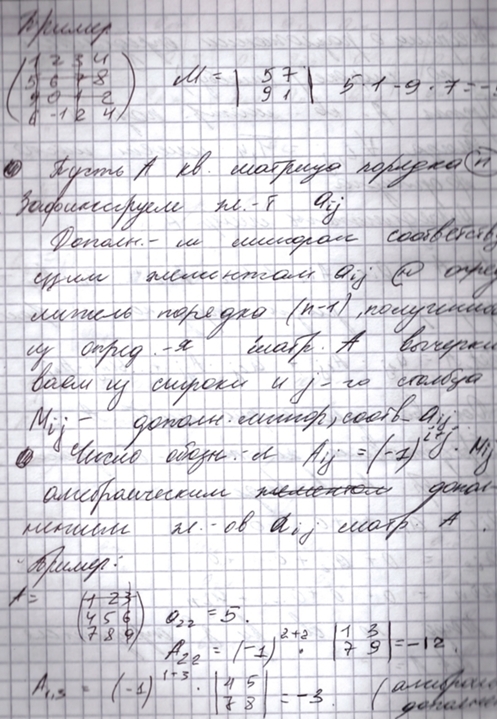 Пример
(1 2 3 4
5 6 7 8
9 0 1 2
-1 2 4) M = | 5 7
9 1 | 5·1-9·7=-
Пусть A кв. матрица порядка n
Зафиксируем эл.-т aij
Дополн.-м минором соответств
ущим элементам aij опред
литель порядка (n-1), полученно
из опред.-я матр. A вычерки
ваем из строки и j-го столбца
Mij - дополн. минор, соотв. aij
Число обозн.-м Aij = (-1)^i+j · Mij
алгебраическим допол-
нением эл.-ов aij матр. A.
Пример:
A = (1 2 3
4 5 6
7 8 9) a22 = 5.
A22 = (-1)^2+2 · |1 3
7 9| = -12.
A1,3 = (-1)^1+3 · |4 5
7 8| = -3. (алгебраи
дополн